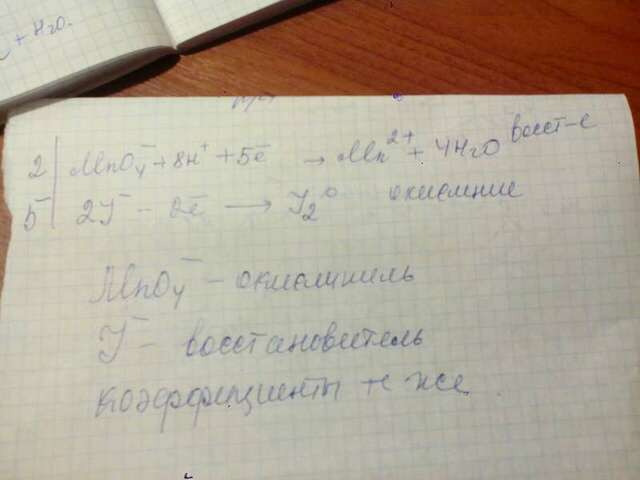 + H₂O.
2 | MnO₄⁻ + 8H⁺ + 5e̅ → Mn²⁺ + 4H₂O восст-е
5 | 2J⁻ - 2e̅ → J₂⁰ окисление
MnO₄⁻ - окислитель
J⁻ - восстановитель
коэффициенты те же